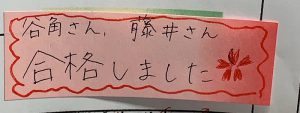 谷角さん、藤井さん
合格しました